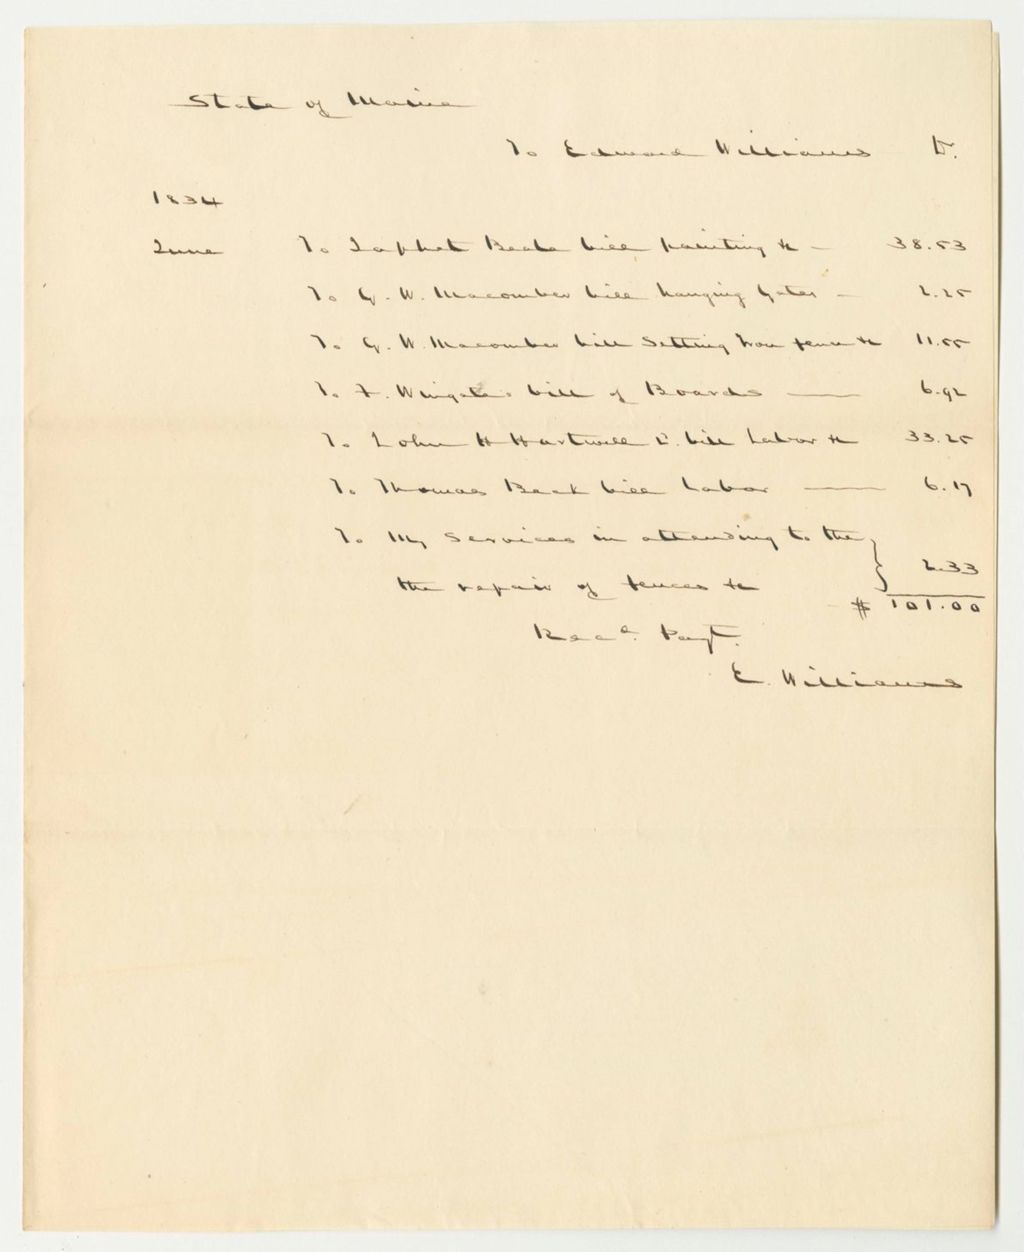 State of Maine
To Edward Williams Dr.
1834
June To Japhet Beale bill painting &c — 38.53
To G. W. Macomber bill hanging Gates — 2.25
To G. W. Macomber bill Setting Iron fence &c 11.55
To F. Wingate's bill of Boards — 6.92
To John H Hartwell bill Labor &c 33.25
To Thomas Beck bill Labor — 6.17
To My Services in attending to the
the repair of fences &c } 2.33
$ 101.00
Recd. Payt.
E. Williams